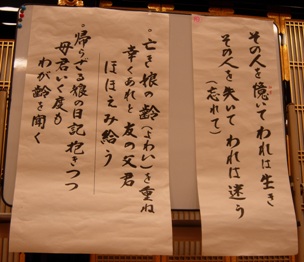 その人を憶いてわれは生き
その人を失いてわれは迷う
(忘れて)
亡き娘の齢(よわい)を重ね
幸くあれと友の父君
ほほえみ給う
帰らざる娘の日記抱きつつ
母君いく度も
わが齢を聞く